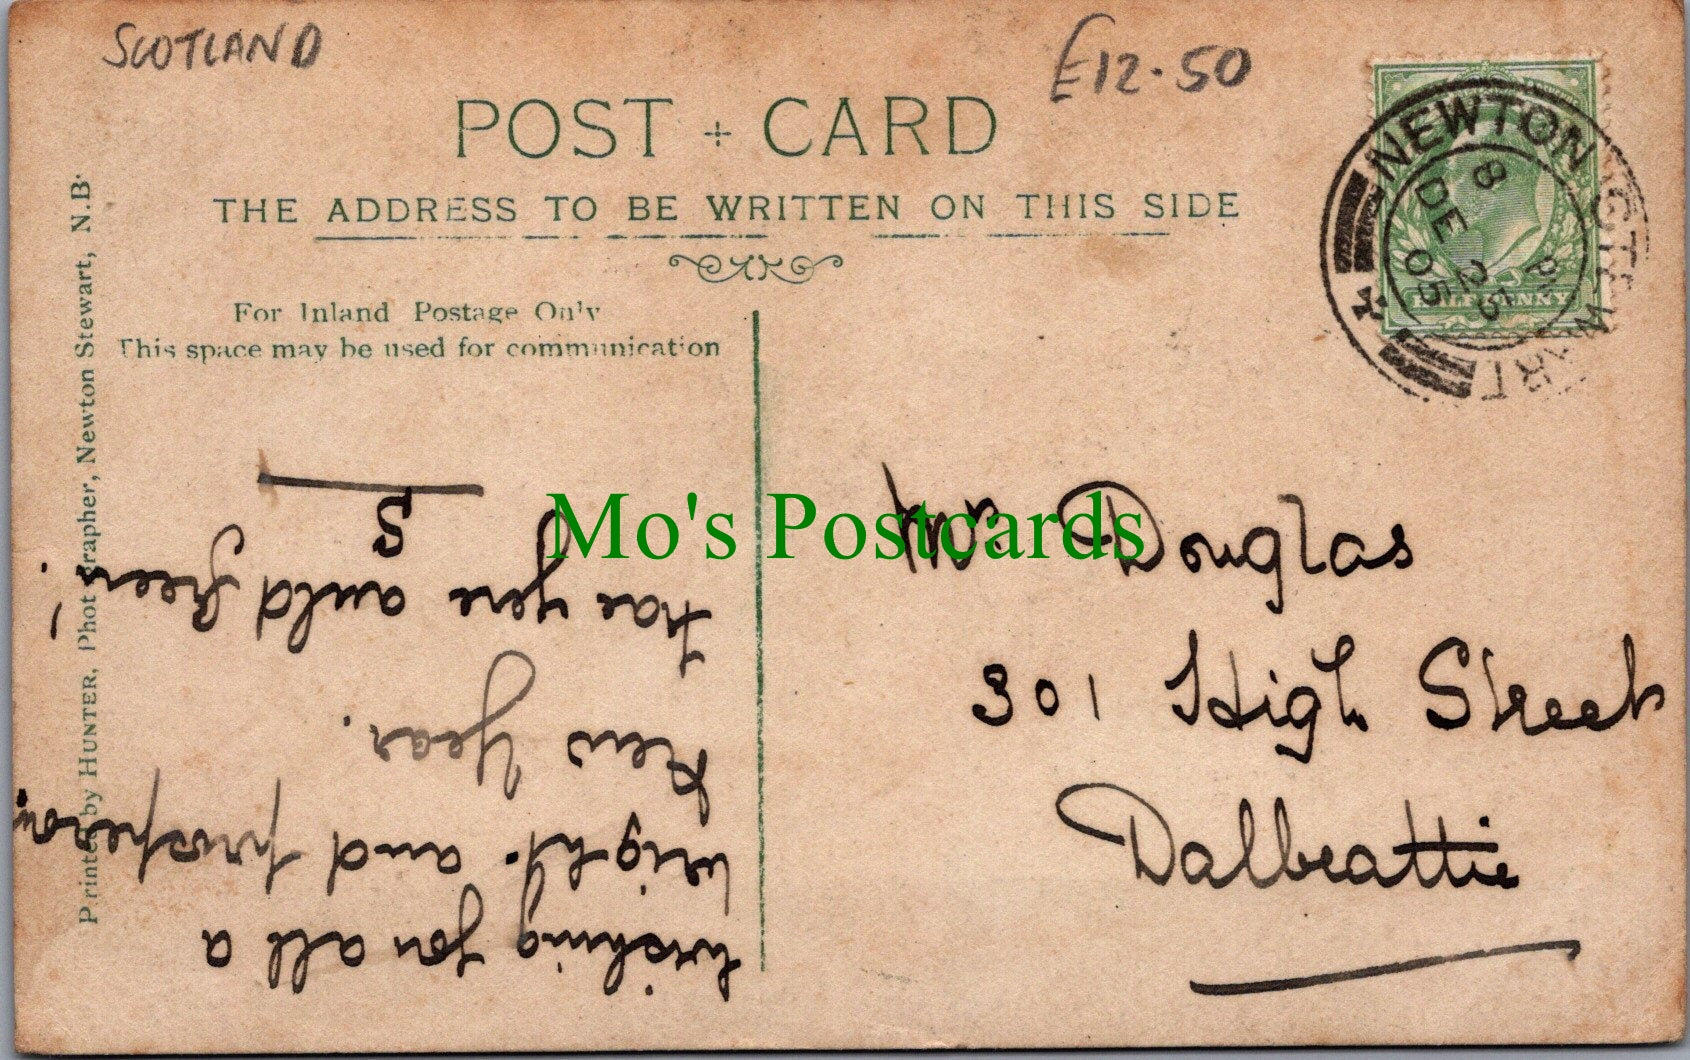 SCOTLAND
£12.50
POST + CARD
THE ADDRESS TO BE WRITTEN ON THIS SIDE
For Inland Postage Only
This space may be used for communication
Printed by HUNTER, Photographer, Newton Stewart, N.B.
NEWTON STEWART
8 PM
DE 25
05
HALFPENNY
Wishing you all a
bright and prosperous
New Year.
frae yere auld freen!
J
S
Mo's Postcards
Douglas
301 High Street
Dalbeattie